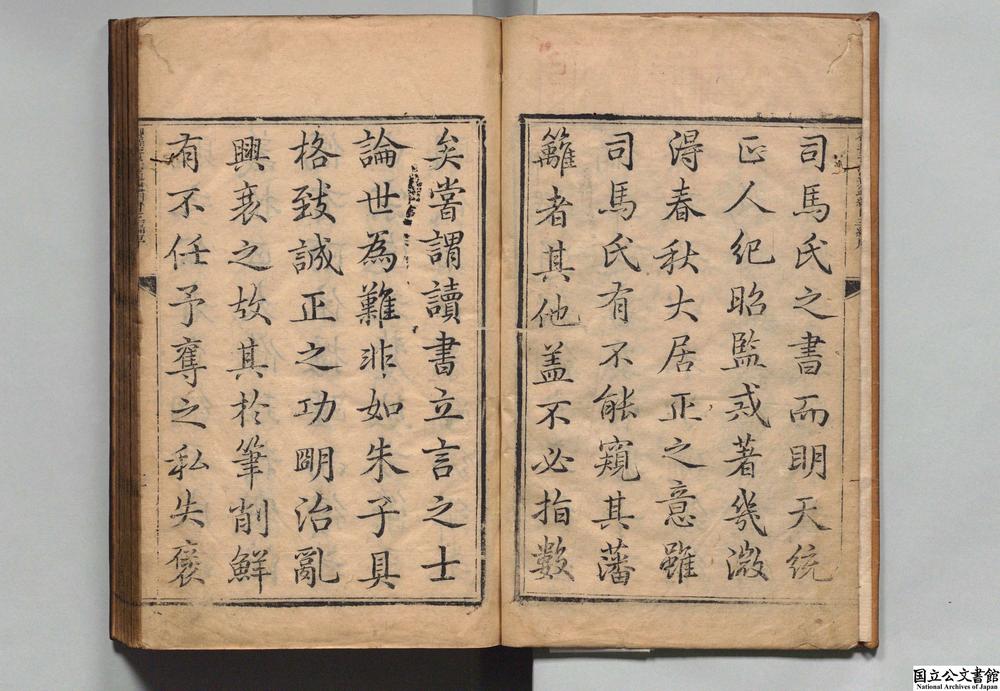 司馬氏之書而明天統
正人紀昭監戒著幾微
得春秋大居正之意雖
司馬氏有不能窺其藩
籬者其他盖不必指數
矣嘗謂讀書立言之士
論世為難非如朱子具
格致誠正之功明治亂
興衰之故其於筆削鮮
有不任予奪之私失褒
国立公文書館
National Archives of Japan